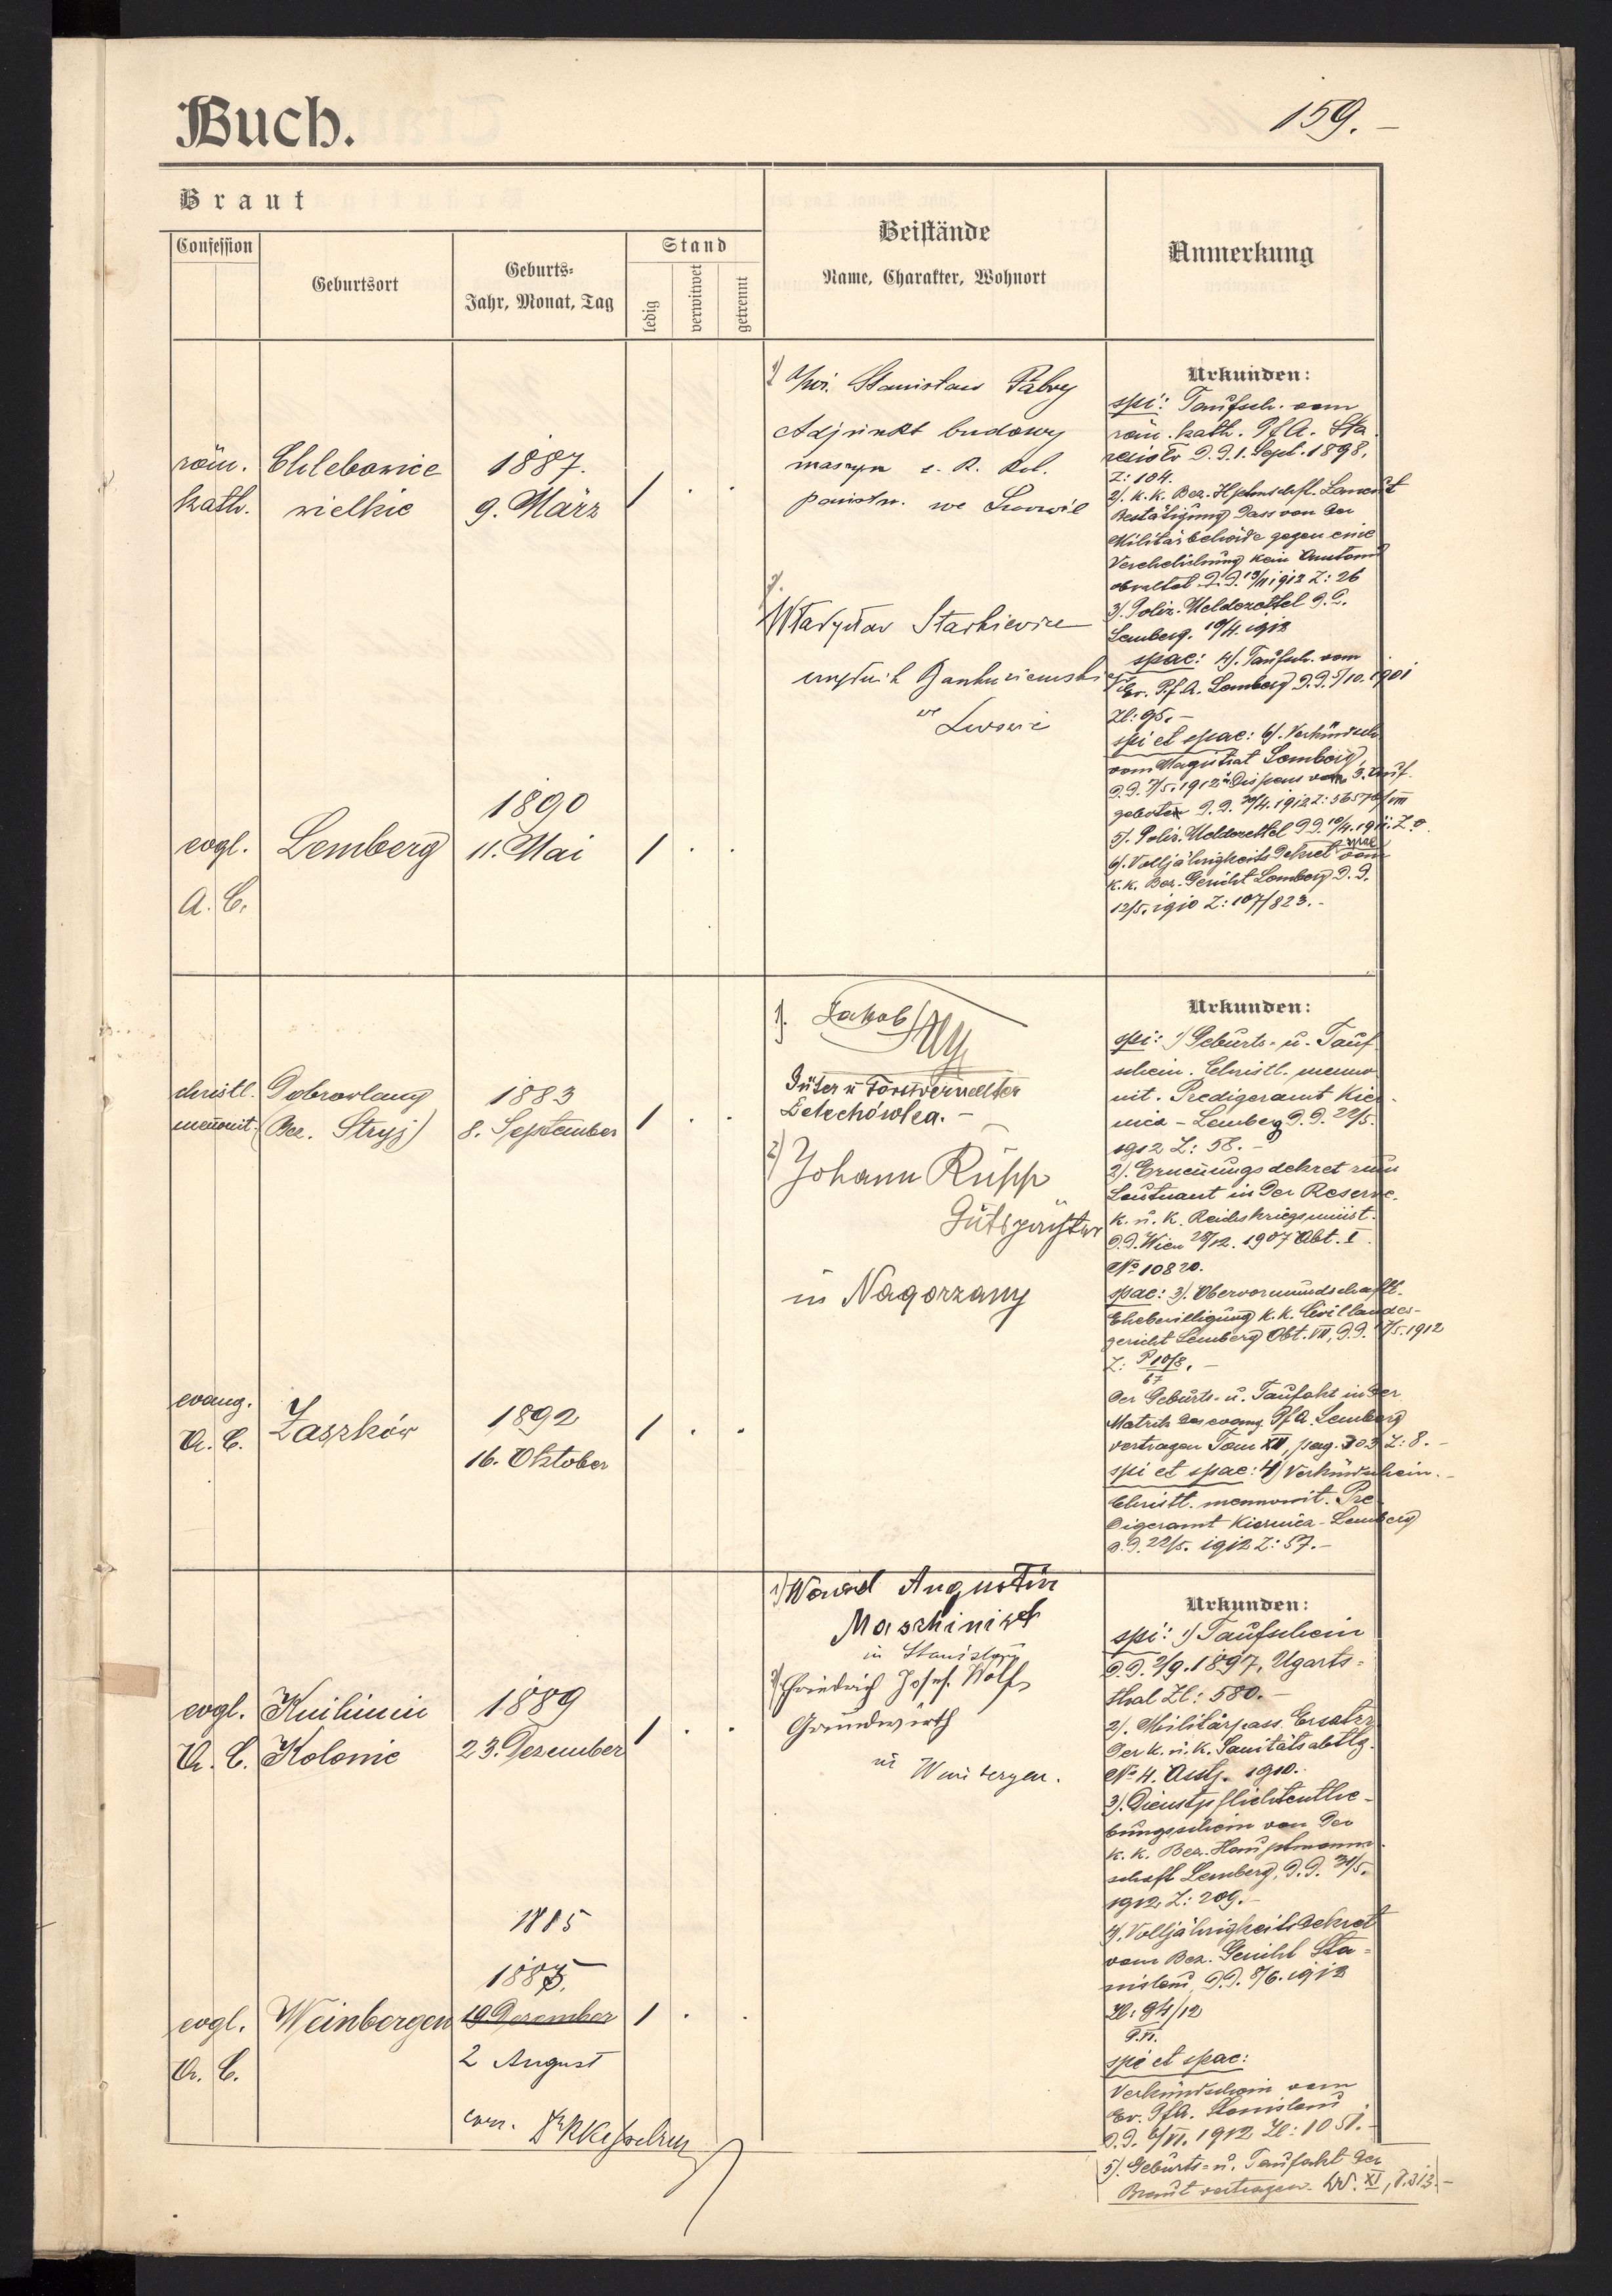 Buch.
159. –
Braut
Confession
Geburtsort
Geburts-
Jahr, Monat, Tag
Stand
ledig
verwitwet
getrennt
Beistände
Name, Charakter, Wohnort
Anmerkung
röm.
kath.
Chlebowice
wielkie
1887.
9. März
1
1) Stanisław
Adjunkt budowy
maszyn c. k. kol.
państw. we Lwowie
2)
Władysław Starkiewicz
we
Lwowie
Urkunden:
spi: Taufsch. vom
röm. kath. PfA. Sta
resioło d. d. 1. Sept. 1898,
Z: 104.
2). k. k. Bez. Hptmschft. Lancut
Bestätigung dass von der
Militärbehörde gegen eine
Verehelichung kein Anstand
obwaltet d. d. 13/II 1912 Z: 26
3). Poliz. Meldezettel d. d.
Lemberg. 10/4. 1912
spae: 4). Taufsch. vom
Ev. Pf. A. Lemberg d. d. 7/10. 1901
Zl: 95. –
spi et spae: 6). Verkündsch.
vom Magistrat Lemberg
d. d. 7/5. 1912 u Dispens vom 3. Auf
gebote d. d. 30/4. 1912 Z:
5). Poliz. Meldezettel d. d. 10/4. 1912. Z. o.
6). Volljährigkeits Dekret spae vom
k. k. Bez. Gericht Lemberg d. d.
12/5. 1910 Z: 107/823. –
evgl.
A. C.
Lemberg
1890
11. Mai
1
christl.
menonit.
Dobrowlany
(Bez. Stryj)
1883
8. September
1
1). Jakob
Güter u Forstverwalter
Zelechówka. –
2) Johann Rupp
Gutspächter
in Nagorzany
Urkunden:
spi: 1) Geburts- u. Tauf
schein. Christl. menno
nit. Predigeramt Kier
nica – Lemberg d. d. 22/5.
1912 Z: 58. –
2). Ernennungs dekret zum
Leutnant in der Reserve.
k. u. k. Reichskriegsminist.
d. d. Wien 28/12. 1907 Abt. I.
No 10820.
spae: 3). Obervormundschaftl.
Ehebewilligung k. k. Civillandes-
gericht Lemberg Abt. VII, d. d. 17/5. 1912
Z: P 10/8. –
67
Der Geburts- u. Taufakt in der
Matrik des evang. Pf. A. Lemberg
vertragen Tom XII, pag. 303 Z: 8. –
spi et spae: 4) Verkündschein. –
Christl. mennonit. Pre
digeramt Kiernica – Lemberg
d. d. 22/5. 1912 Z: 57. –
evang.
A. C.
Zaszków
1892
16. Oktober
1
1) Augustin
Maschinist
in
2) Friedrich Josef Wolf
Grundwirth
in Weinbergen.
evgl.
A. C.
Knihinin
Kolonie
1889
23. Dezember
1
Urkunden:
spi: 1) Taufschein
d. d. 2/9. 1897, Ugarts-
thal Zl: 580. –
2). Militärpass
der k. u. k. Sanitätsabtlg.
No 4. Asstj. 1910.
3). Dienstpflichtenthe-
bungsschein von der
k. k. Bez. Hauptmann-
schaft Lemberg, d. d. 31/5.
1912, Z: 209. –
4). Volljährigkeits Dekret
vom Bez. Gericht Sta-
nislau d. d. 8/6. 1912
Zl: 94/12
spi et spae:
Verkündschein vom
Ev. PfA. Stanislau
d. d. 6/VI. 1912 Zl: 1051. –
5). Geburts- u. Taufakt der
Braut vertragen. W. XI, P. 313. –
evgl.
A. C.
Weinbergen
1885
1885.
19 Dezember
2 August
1
corr. Dr